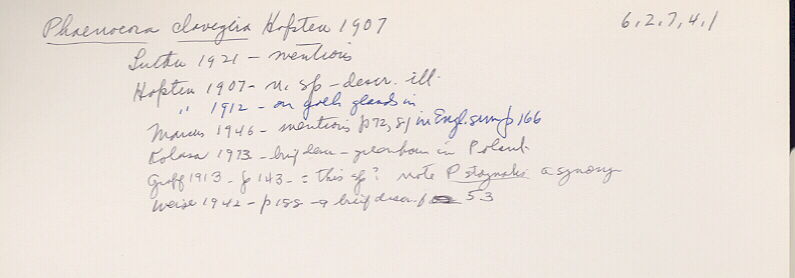 Phaenocora clavigera Hofsten 1907
6,2,7,4,1
Luther 1921 - mentions
Hofsten 1907 - n. sp - descr. ill.
" 1912 - on yolk glands in
Marcus 1946 - mentions p72, 81 in Engl. summ p 166
Kolasa 1973 - brief descr - greenhouse in Poland
Graff 1913 - p 143 - = this sp? note P stagnalis a synony
Weise 1942 - p188 - a brief descr. p 53